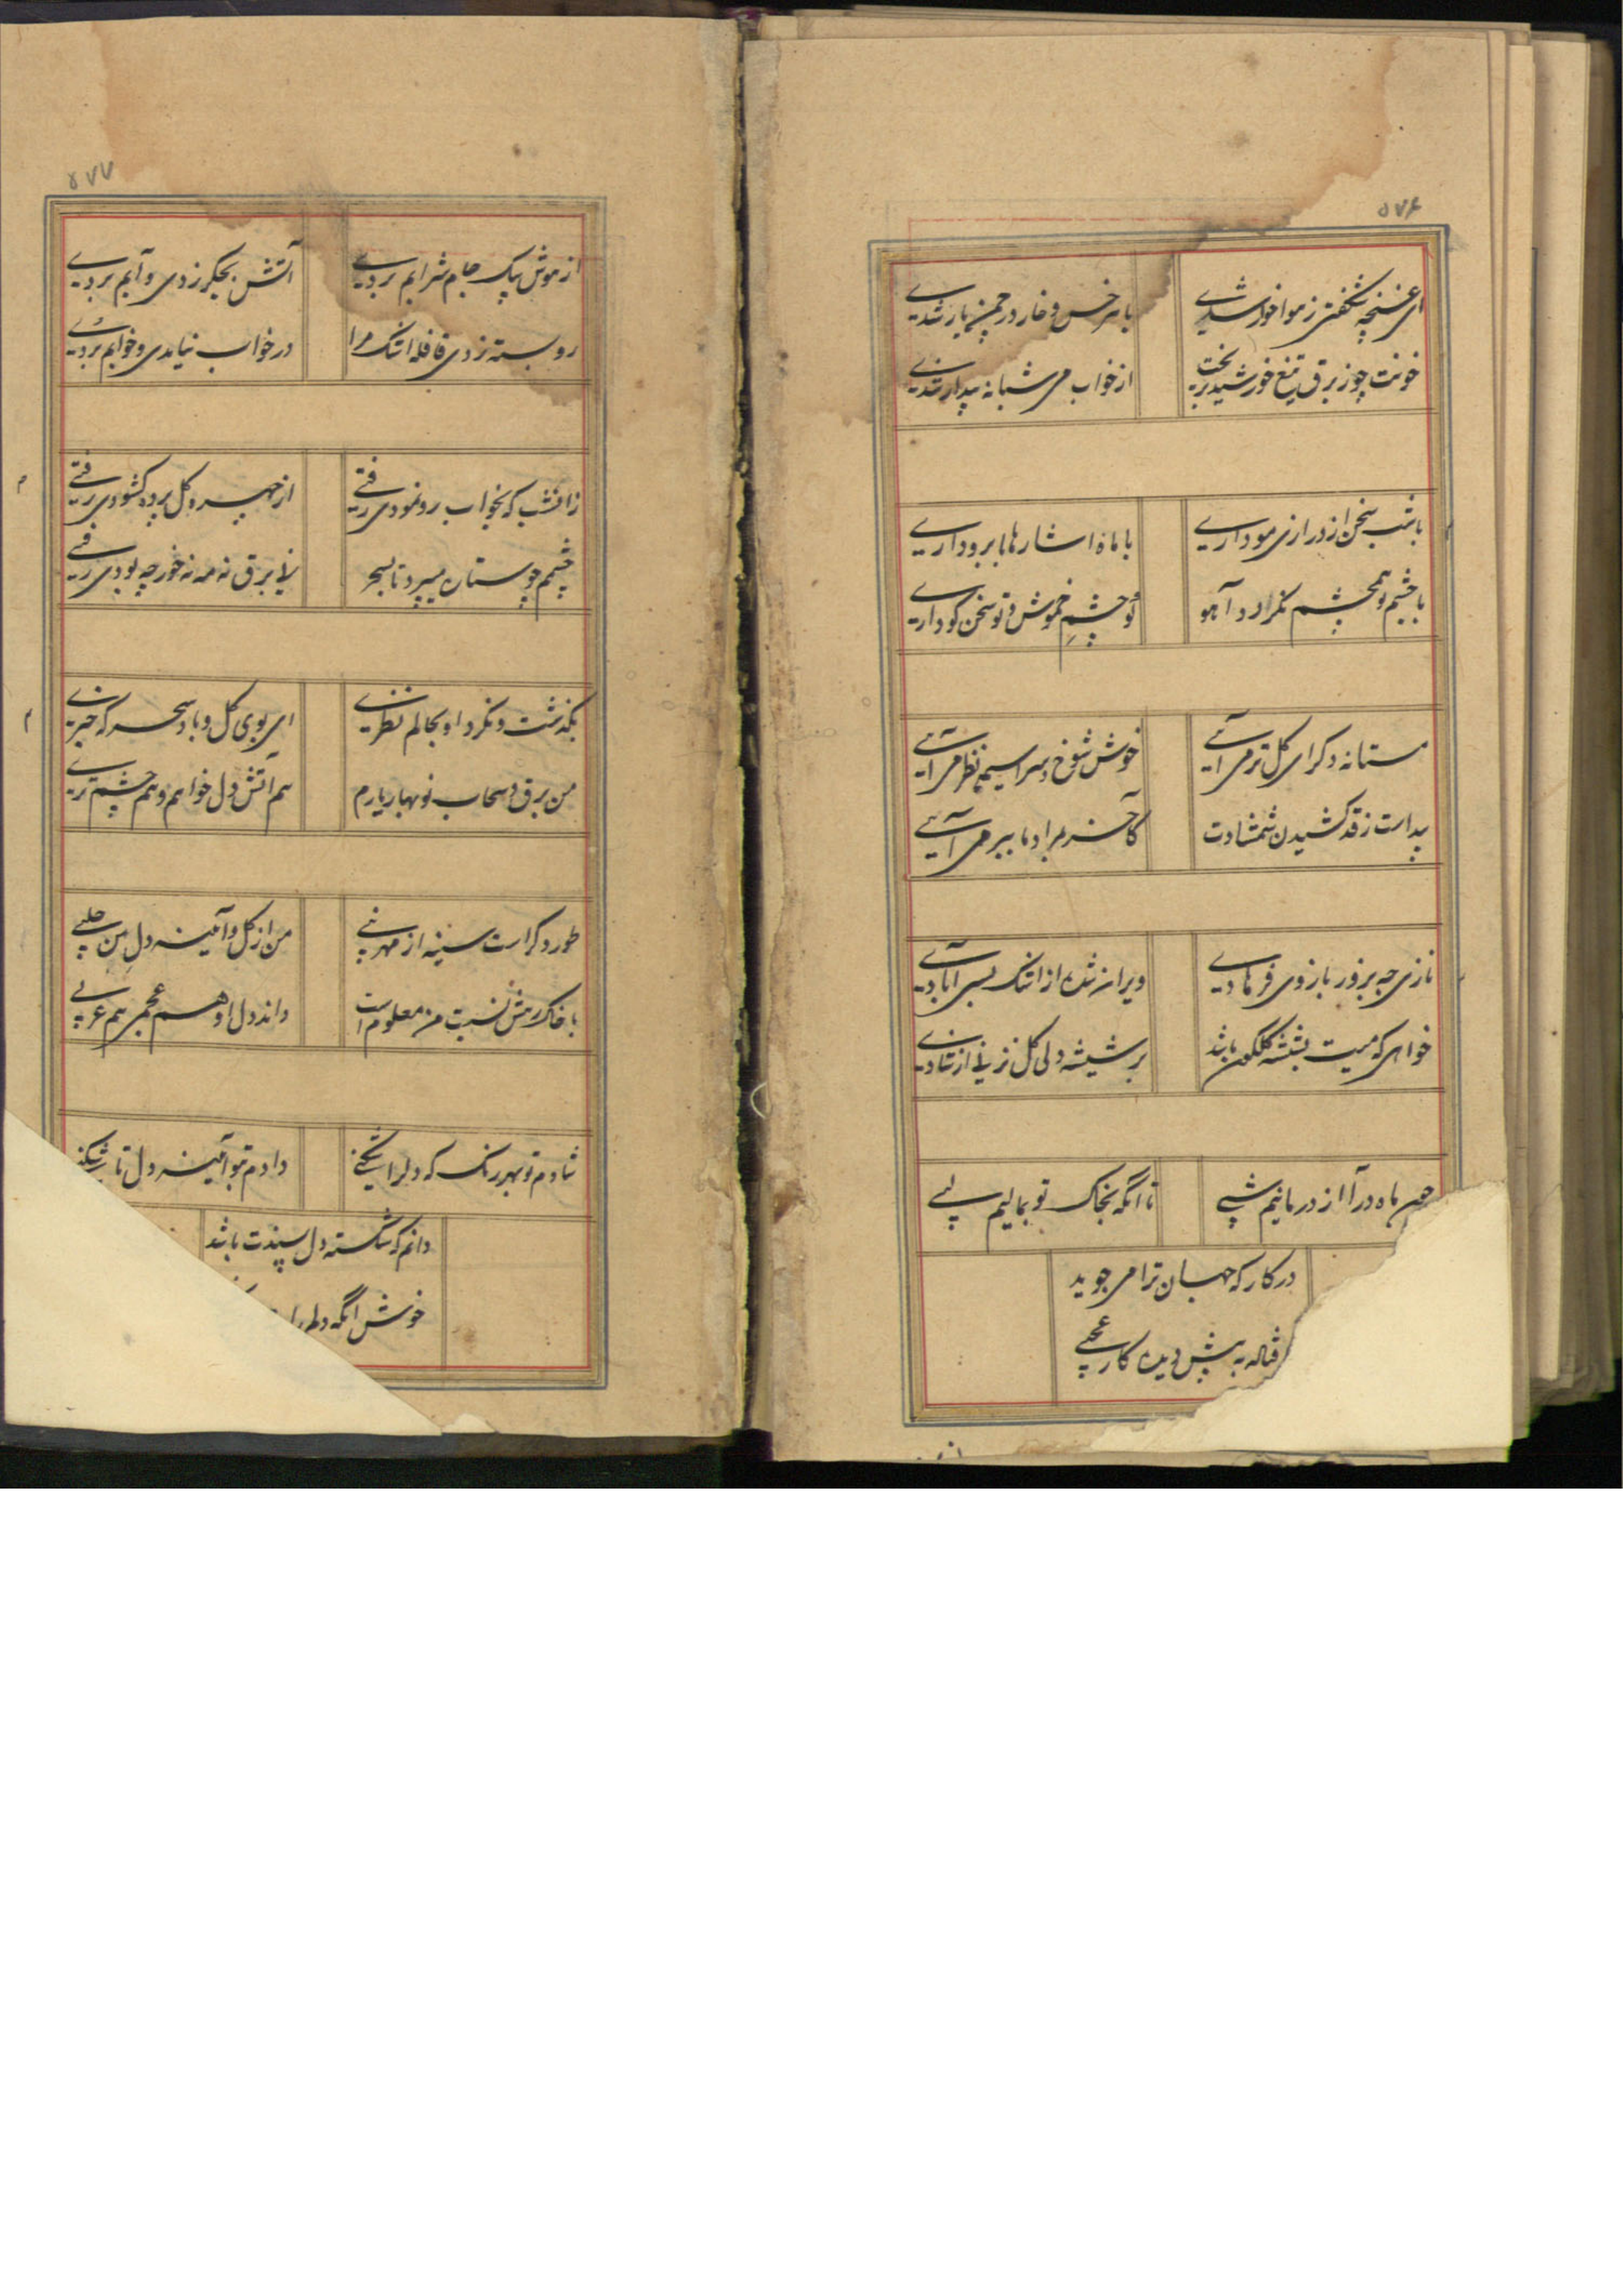 ۵۷۶
ای غنچه شکفتی ز موا خوار شدی
با هر خس و خار در چمن یار شدی
خونت چو ز برق تیغ خورشید بریخت
از خواب می شبانه بیدار شدی
با شب سخن از درازی مو داری
با ماه اشارها بابرو داری
با چشم تو همچشم نکردد آهو
او چشم خموش و تو سخن کو داری
مستانه دکر ای کل تر می آیی
خوش شوخ و سراسیمه نظر می آیی
پیداست ز قد کشیدن شمشادت
کآخر بمراد ما ببر می آیی
نازی چه بزور بازوی فرهادی
ویران شده از اشک بسی آبادی
خواهی که میت بشیشه کلکون باشد
بر شیشه دلی کل نزنی از شادی
چون ماه درآ از در مانیم شبی
تا انکه بخاک تو بمالیم لبی
در کار که جهان ترا می جوید
دیده کار عجبی
۵۷۷
از هوش بیک جام شرابم بردی
آتش بجکر زدی و آبم بردی
رو بسته زدی قافله اشک مرا
در خواب نیامدی و خوابم بردی
زانشب که بخواب رو نمودی رفتی
از چهره کل پرده کشودی رفتی
چشم چو ستاره میپرد تا بسحر
نی برق نه مه نه خور چه بودی رفتی
بکذشت و نکرد او بحالم نظری
ای بوی کل و باد سحر که خبری
من برق و سحاب نوبهار یارم
هم آتش دل خواهم و هم چشم تری
طور دکر است سینه از مهر نبی
من از کل و آئینه دل من حلبی
با خاک رهش نسبت من معلوم است
داند دل او هم عجمی هم عربی
شادم تو بهر رنک که دلرا شکنی
دادم بتو آئینه دل تا شکنی
دانم که شکسته دل پسندت باشد
خوش انکه دلم را